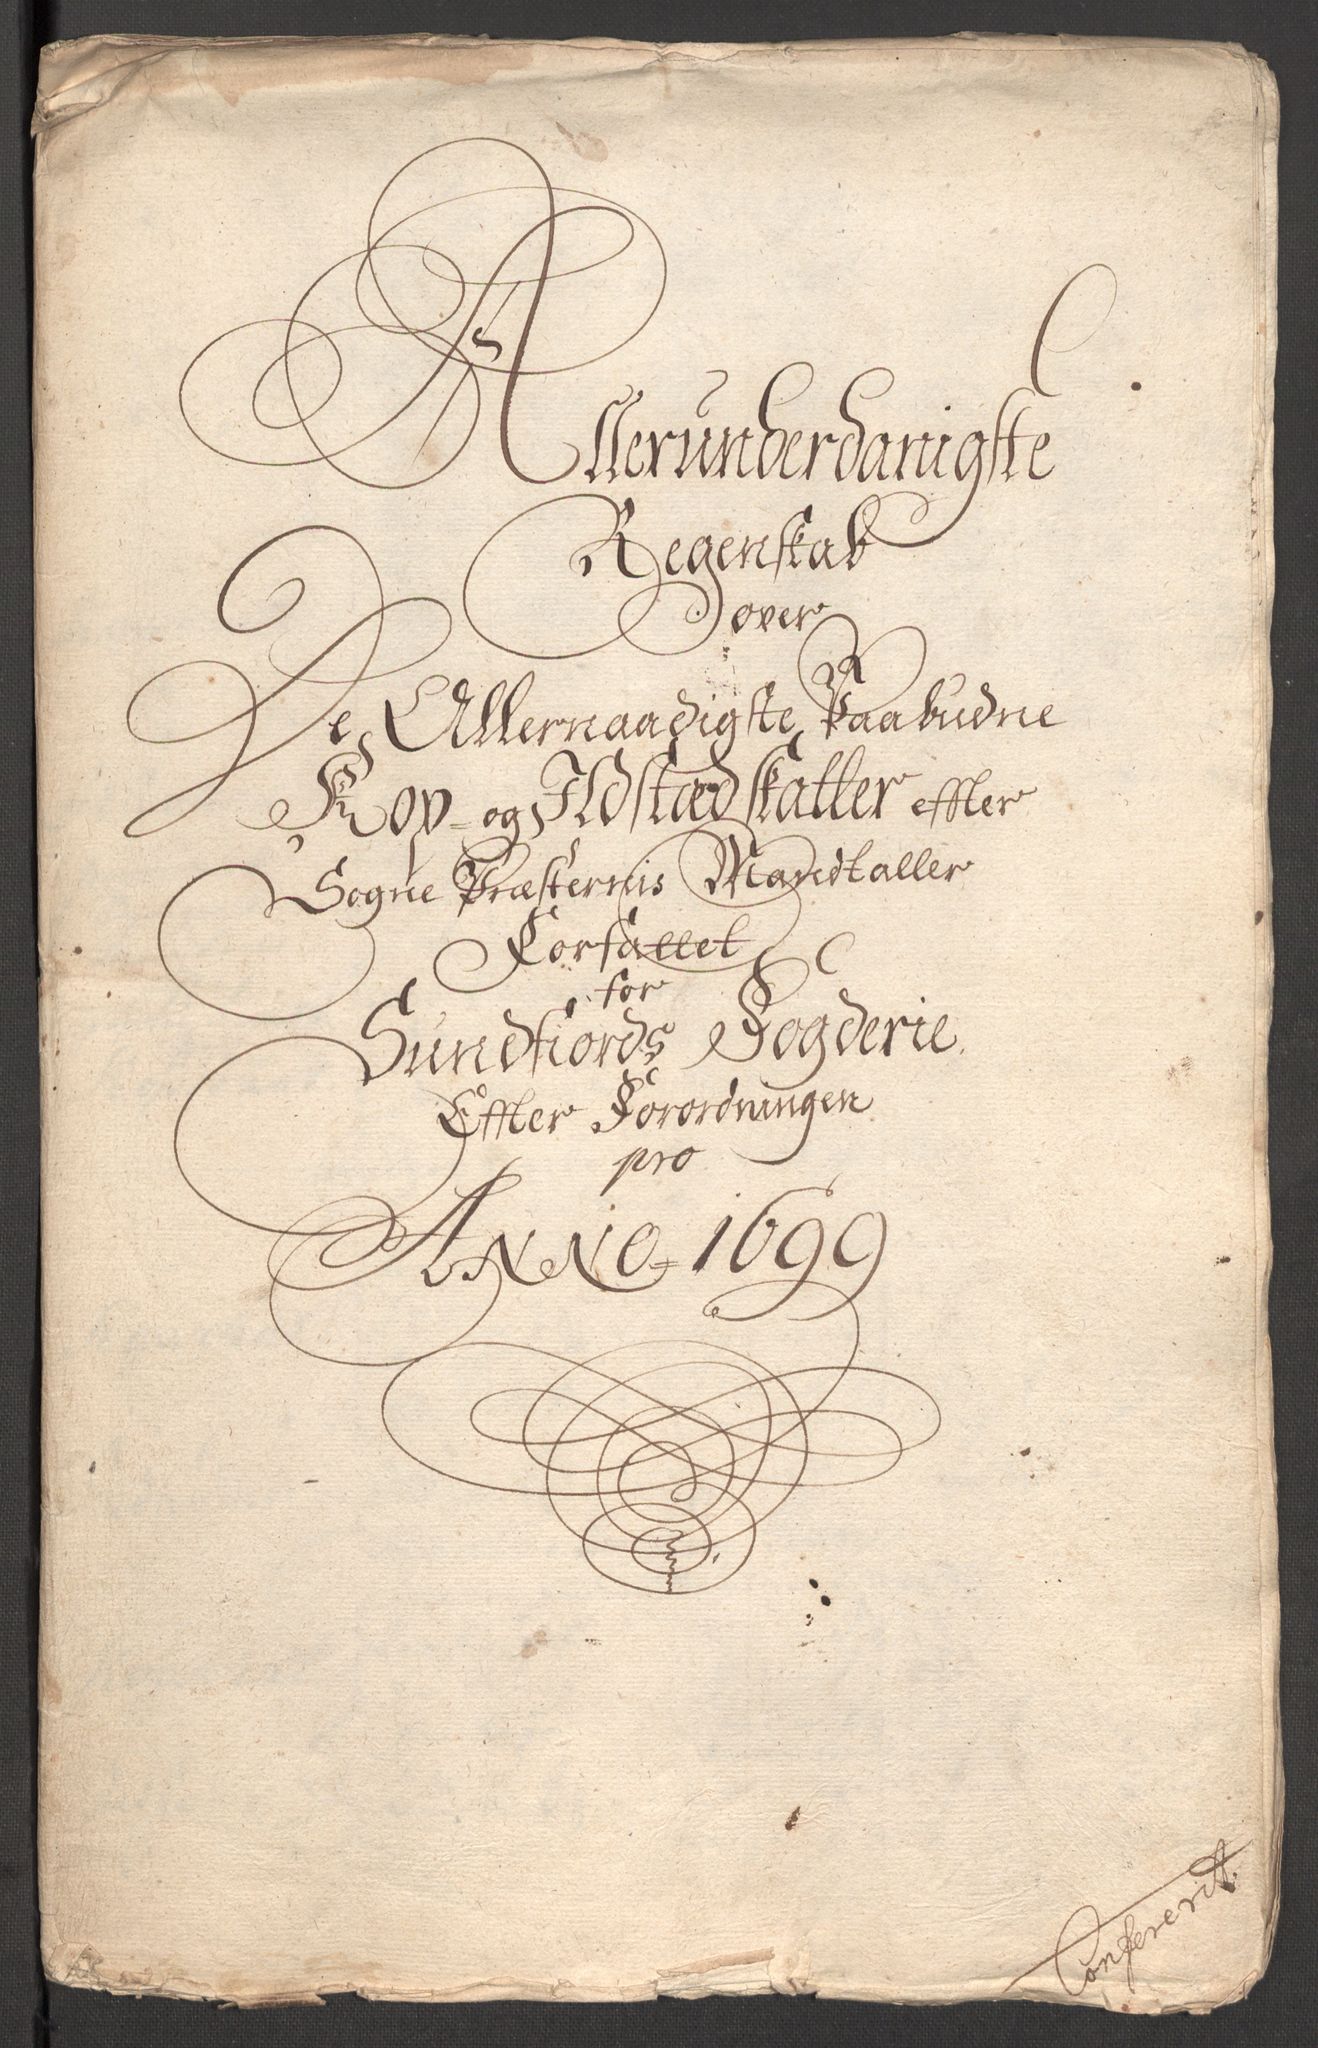 Allerunderdanigste
Regenskab
over
De Allernaadigste Paabudne
Kop- og Ildstædskatter effter
Sogne Præsternis Mandtaller
Forfattet
for
Sundfiords Fogderie
Effter Forordningen
pro
Anno 1699
Confererit